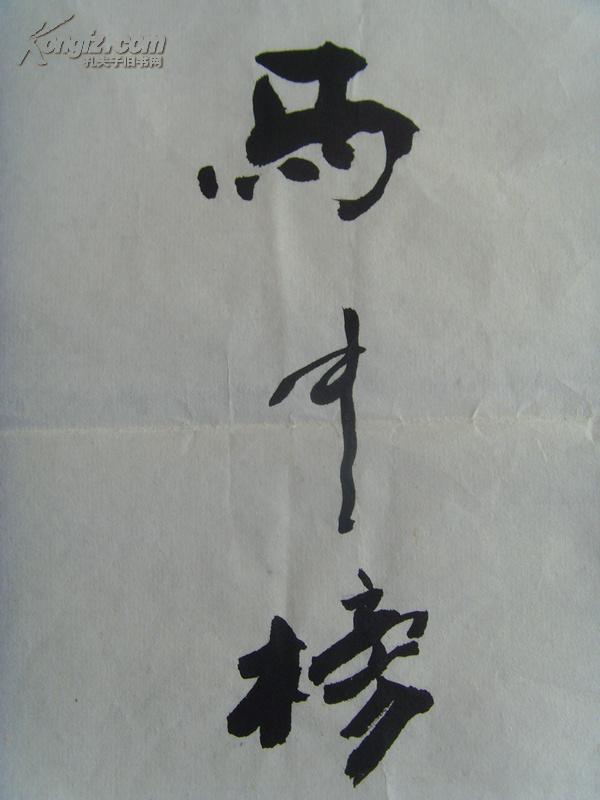 Kongfz.com
孔夫子旧书网
馬
中
榜